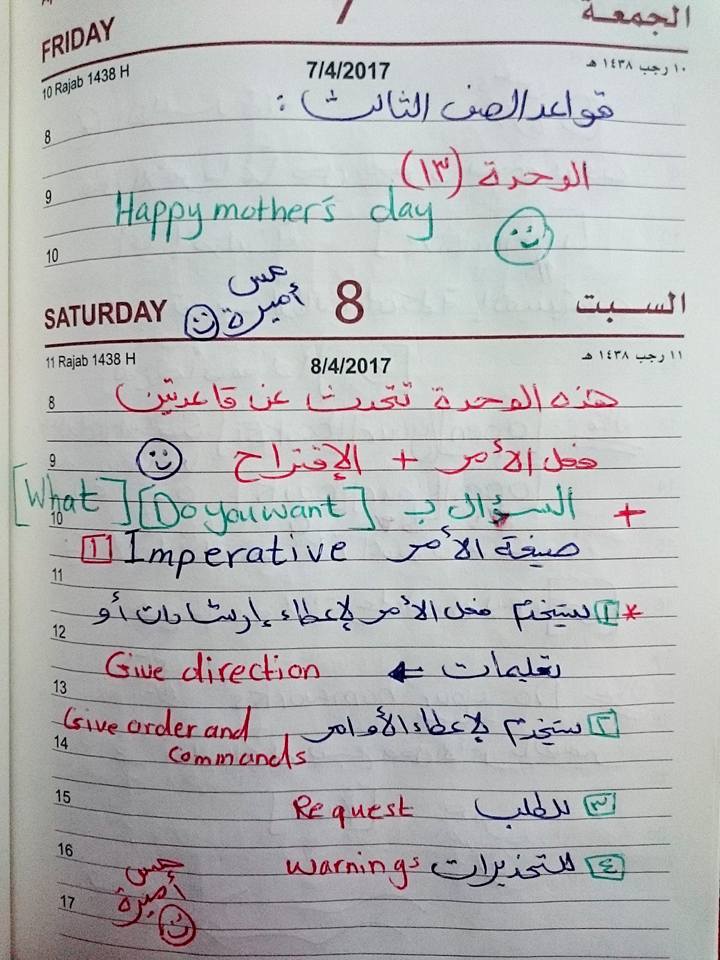 FRIDAY 7 الجمعة
10 Rajab 1438 H 7/4/2017 ١٠ رجب ١٤٣٨ هـ
قواعد الصف الثالث :
8
الوحدة (١٣)
9
Happy mother's day
10
مس
أميرة
SATURDAY 8 السبت
11 Rajab 1438 H 8/4/2017 ١١ رجب ١٤٣٨ هـ
8 هذه الوحدة تتحدث عن قاعدتين
9 فعل الأمر + الإقتراح
10 + السؤال بـ [Do you want] [What]
صيغة الأمر Imperative [١]
11
12 * [١] يستخدم فعل الأمر لإعطاء إرشادات أو
تعليمات ← Give direction
13
[٢] يستخدم لإعطاء الأوامر Give order and
14 commands
15 [٣] للطلب Request
16 [٤] للتحذيرات warnings
مس
17 أميرة